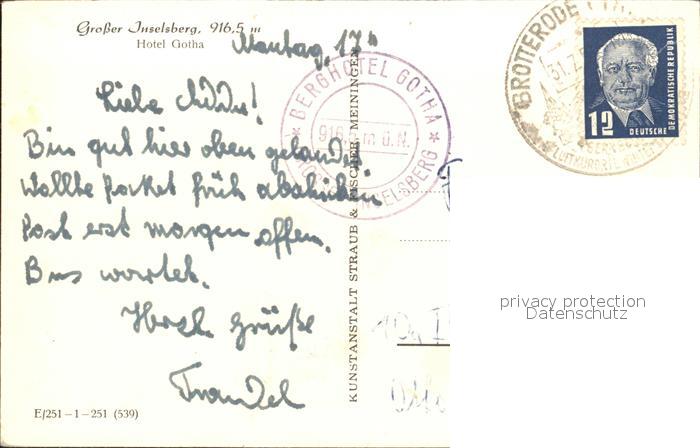 Großer Inselsberg, 916,5 m
Hotel Gotha
Montag, 17
Liebe
Bin gut hier oben gelandet.
Wollte Paket früh abschicken
Post erst morgen offen.
Bus wartet.
Herzl. Grüße
Traudel
E/251-1-251 (539)
KUNSTANSTALT STRAUB & FISCHER MEININGEN
★ BERGHOTEL GOTHA ★
916,5 m ü. N.
INSELSBERG
BROTTERODE (TH
31.7.5
LUFTKURORT U. WINTERS
12
DEUTSCHE
DEMOKRATISCHE REPUBLIK
10a
privacy protection
Datenschutz